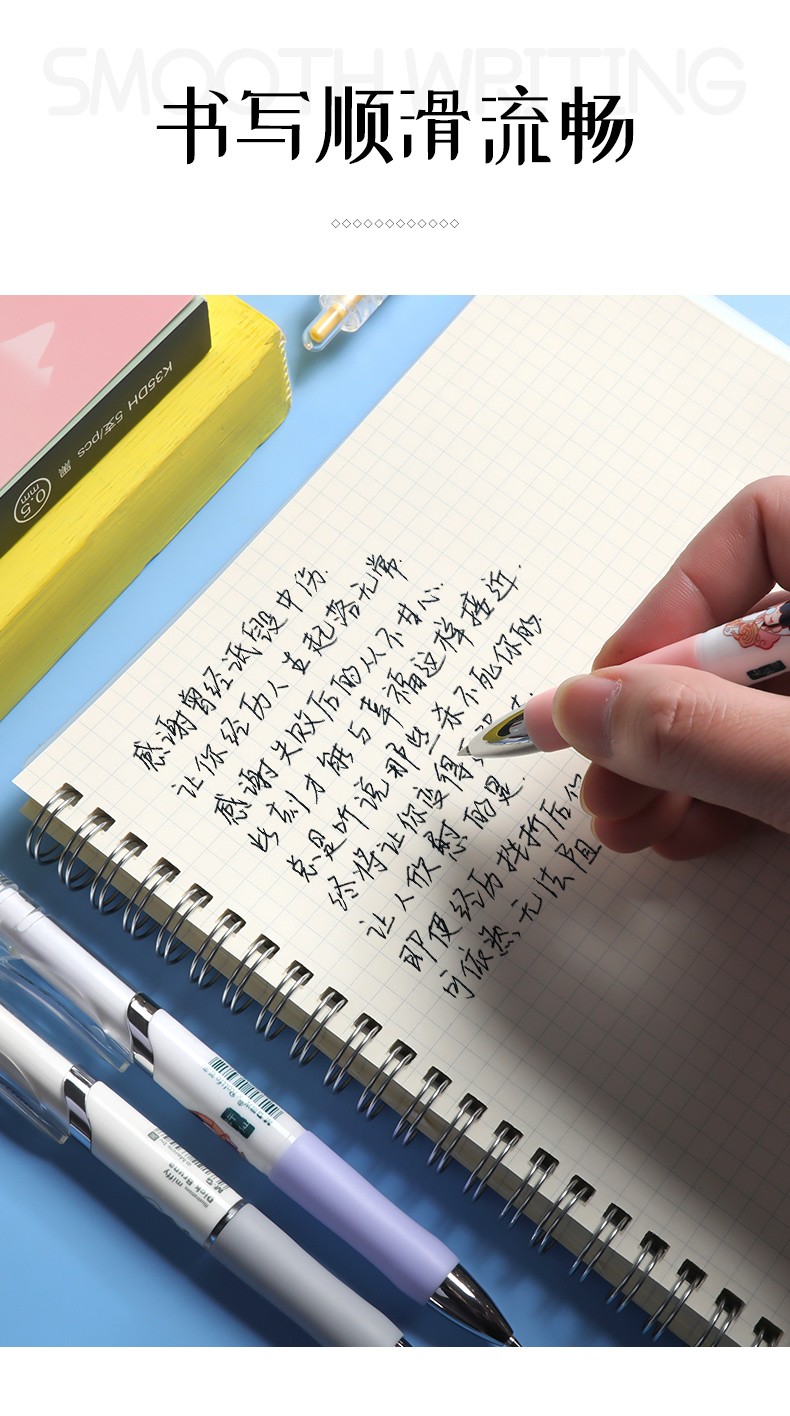 SMOOTH WRITING
书写顺滑流畅
K35DH 5支/pcs 黑
0.5
mm
感谢曾经诋毁中伤.
让你经历人生起落无常
感谢失败后的从不甘心.
此刻才能与幸福这样接近.
总是听说那些杀不死你的
终将让你变得
让人欣慰的是.
即使经历挫折后你
可依然无法阻
Illustration miffy
Dick Bruna